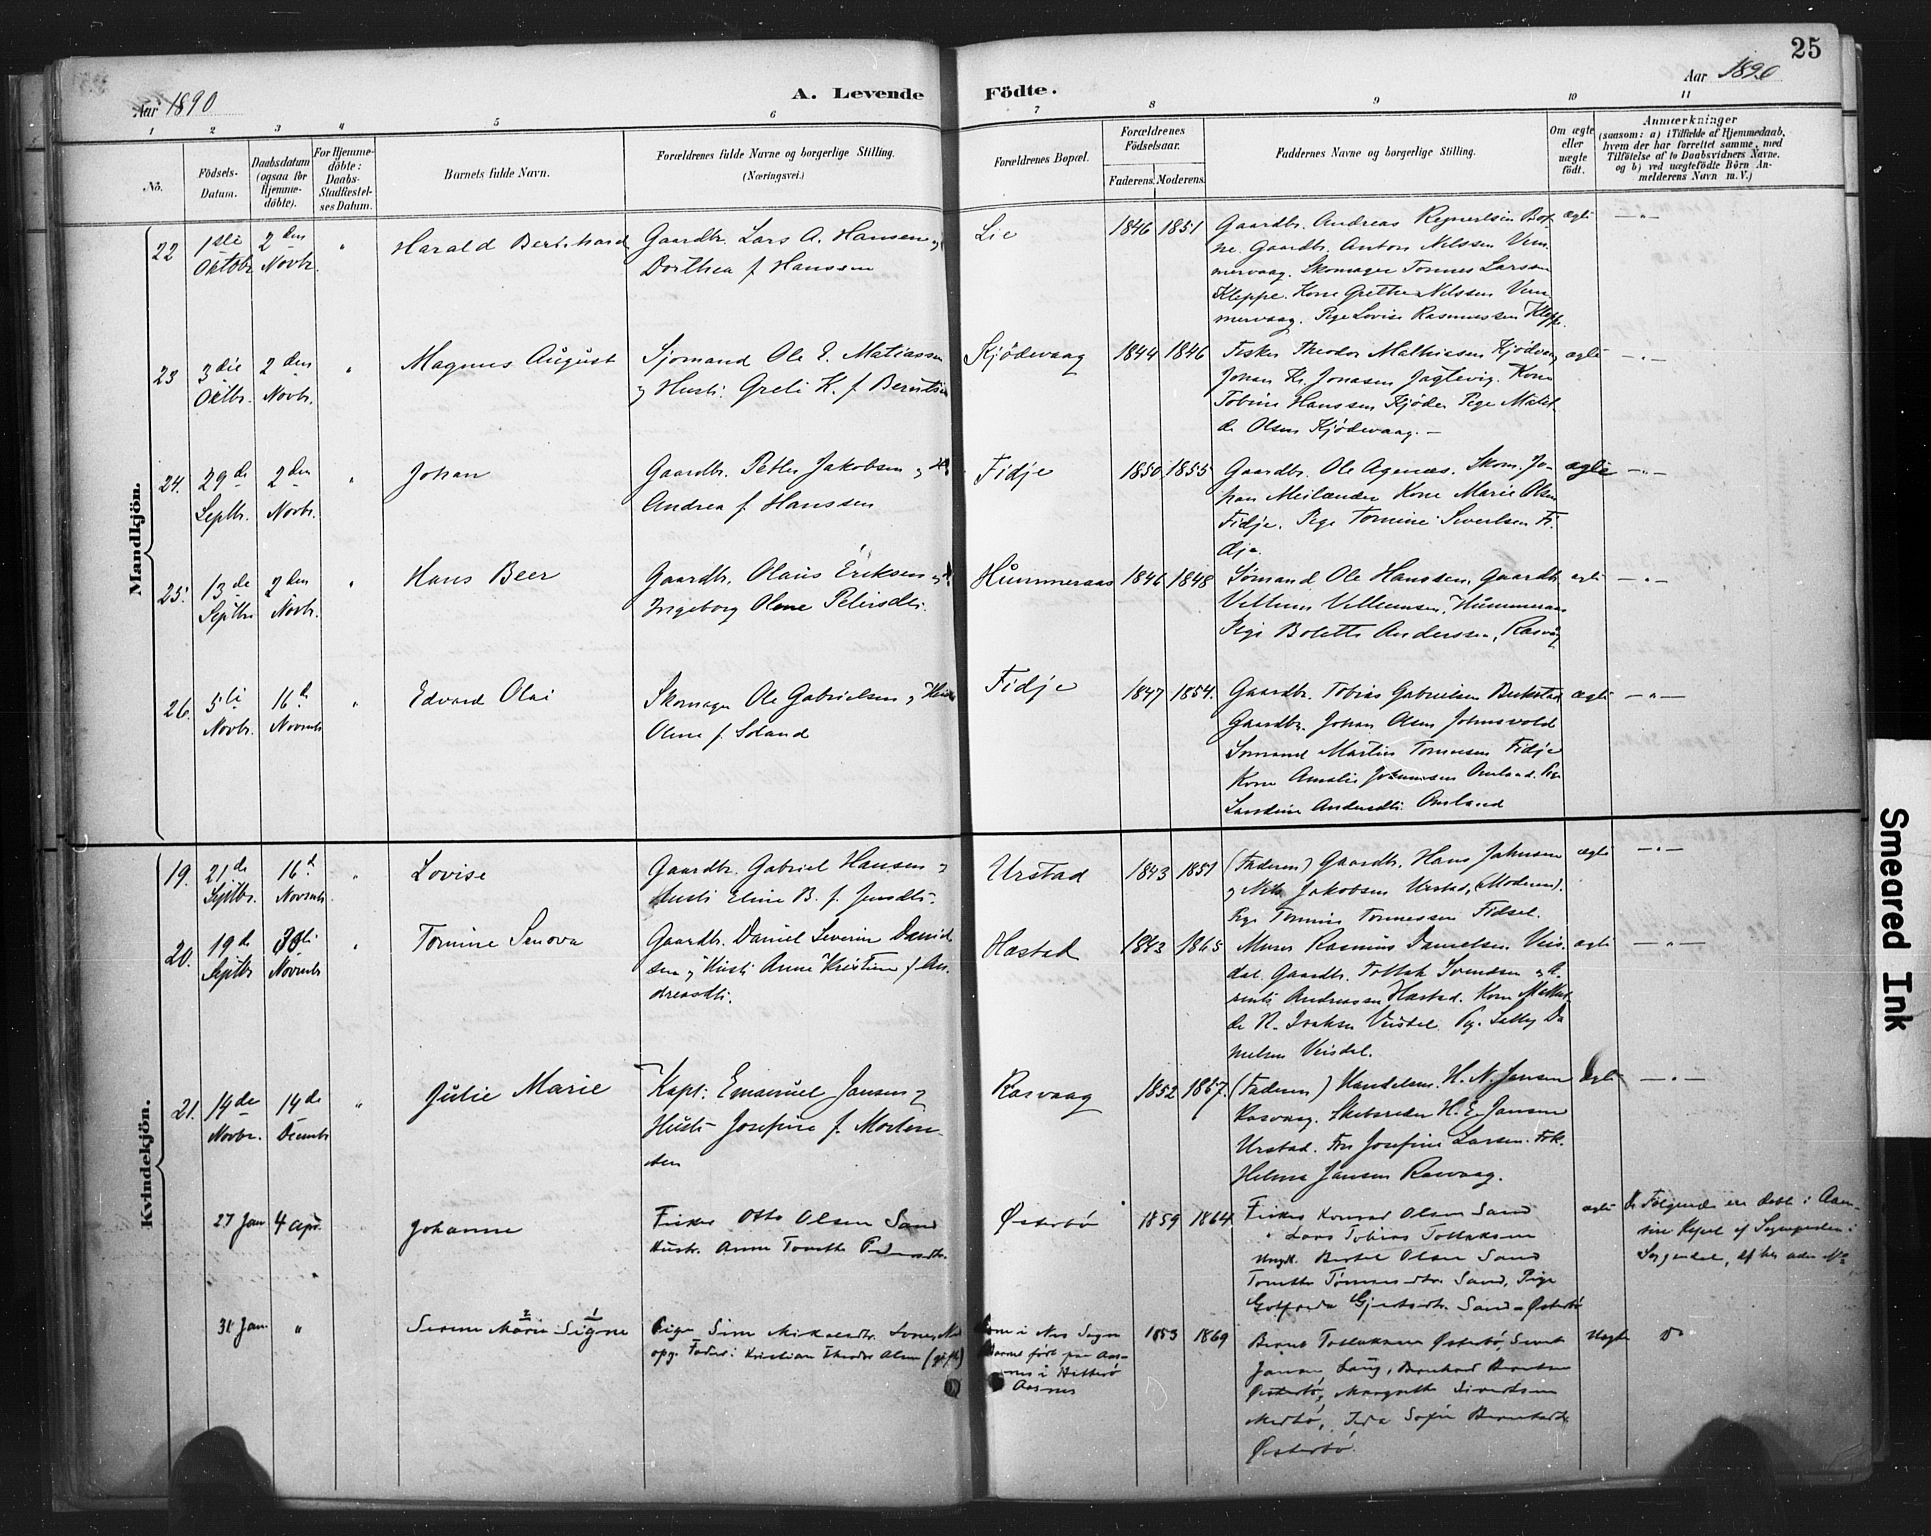 25
Aar 1890
A. Levende
Födte.
Aar 1890
1 2 3 4 5 6 7 8 9 10 11
No.
Födsels-
Datum.
Daabsdatum
(ogsaa for
Hjemme-
döbte).
For Hjemme-
döbte:
Daabs-
Stadfæstel-
ses Datum.
Barnets fulde Navn.
Forældrenes fulde Navne og borgerlige Stilling.
(Næringsvei.)
Forældrenes Bopæl.
Forældrenes
Födselsaar.
Faderens. Moderens.
Faddernes Navne og borgerlige Stilling.
Om ægte
eller
uægte
födt.
Anmærkninger
(saasom: a) i Tilfælde af Hjemmedaab,
hvem der har forrettet samme, med
Tilföielse af to Daabsvidners Navne,
og b) ved uægtefödte Börn An-
melderens Navn m. V.)
Mandkjön.
22
1ste
Oktobr.
2den
Novbr.
"
Harald Bernhard
Gaardbr. Lars A. Hansen og
Dorthea f. Hanssen
Lie
1846 1851
Gaardbr. Andreas Reinertsen
Gaardbr. Anton Nilssen Vem-
mervaag. Skomager Tonnes Larsen
Kleppe. Kone Grethe Nilssen Vem-
mervaag. Pige Lovise Rasmussen Kleppe.
ægte
— " —
23
3die
Oktbr.
2den
Novbr.
"
Magnus August
Sjömand Ole E. Matiassen
og Hustr. Grete K. f. Berntsen
Kjödevaag
1844 1846
Fisker Theodor Mathiasen Kjödevaag
Johan Kr. Jonasen Jagtevig. Kone
Tobine Hanssen Kjöde. Pige Matil-
de Olsen Kjödevaag. —
ægte
— " —
24.
29de
Septbr.
2den
Novbr.
"
Johan
Gaardbr. Peter Jakobsen og H.
Andrea f. Hanssen
Fidje
1850 1855
Gaardbr. Ole Agenæs. Skom. Jo-
han Meilænder Kone Marie Olsen
Fidje. Pige Tomine Sivertsen Fi-
dje.
ægte
— " —
25.
13de
Septbr.
2den
Novbr.
"
Hans Beer
Gaardbr. Olaus Eriksen og H.
Ingeborg Olene Petersdtr.
Hummeraas
1846 1848
Sömand Ole Hanssen, Gaardb.
Villum Villumsen, Hummeraas
Pige Bolette Anderssen, Rasvåg
ægte
— " —
26.
5te
Novbr.
16de
Novembr
"
Edvard Olai
Skomager Ole Gabrielsen og Hustr
Olene f. Soland
Fidje
1847 1854.
Gaardbr. Tobias Gabrielsen
Gaardbr. Johan Olsen
Sömand Martin Tonnesen Fidje
Kone Amalie Omland. Pige
Andersdtr. Omland
ægte
— " —
Kvindekjön.
19.
21de
Septbr.
16de
Novembr
"
Lovise
Gaardbr. Gabriel Hansen og
Hustr Eline B. f. Jensdtr.
Urstad
1843 1851
(Faderen) Gaardbr. Hans Jahnsen
og Nils Jakobsen Urstad, (Moderen).
Pige Tomine Tonnessen Fidsel.
ægte
— " —
20.
19de
Septbr
30te
Novembr
"
Tomine Senova
Gaardbr. Daniel Severin Daniel-
sen og Hustr. Anne Kristine f. An-
dreasdtr.
Hæstad
1843 1865
Murer Rasmus Danielsen Veis-
dal. Gaardbr. Tollak Svendsen og
Andreassen Hæstad. Kone Mathil-
de R. Isaksen Veisdal. Pg. Da-
nielsen Veisdal.
ægte
— " —
21.
19de
Novbr.
14de
Decembr
"
Julie Marie
Kapt. Emanuel Jansen og
Hustr. Josefine f. Morten-
sen
Rasvaag
1852 1857.
(Faderen) Handelsm. H. N. Jansen
Rasvaag. Skibsreder H. E. Jansen
Urstad. Fru Josefine Larsen. Frk.
Helma Jansen Rasvaag.
ægte
— " —
27 Jan
4 apr.
Johanne
Fisker Otto Olsen Sand
Hustr. Anne Tomette Pedersdtr.
Österbö
1859 1864
Fisker Konrad Olsen Sand
" Lars Tobias Tollaksen
Ungk. Bertel Olsen Sand
Tomette Tönnesdtr. Sand, Pige
Gotfreda Gjertsdtr. Sand - Österbö
ægte
Følgende ere døbt i Aan-
sire Kapel af Sognepresten i
Sogndal,
31 Jan
"
Serine Marie Signe
2 1
Pige Sine Mikalsdtr.
opg. Fader: Kristian Theodor Olsen (gift)
i Næs Sogn
Barnet født paa Aas-
næs i Hitterö
Aasnæs
1853 1869
Bernt Tollaksen Österbö,
Jansen, Bernhard Berntsen
Österbö, Margrethe Sivertsen
Medbö, Ida Sofie Bernhardsdtr.
Österbö.
Uægte
Do
Smeared Ink